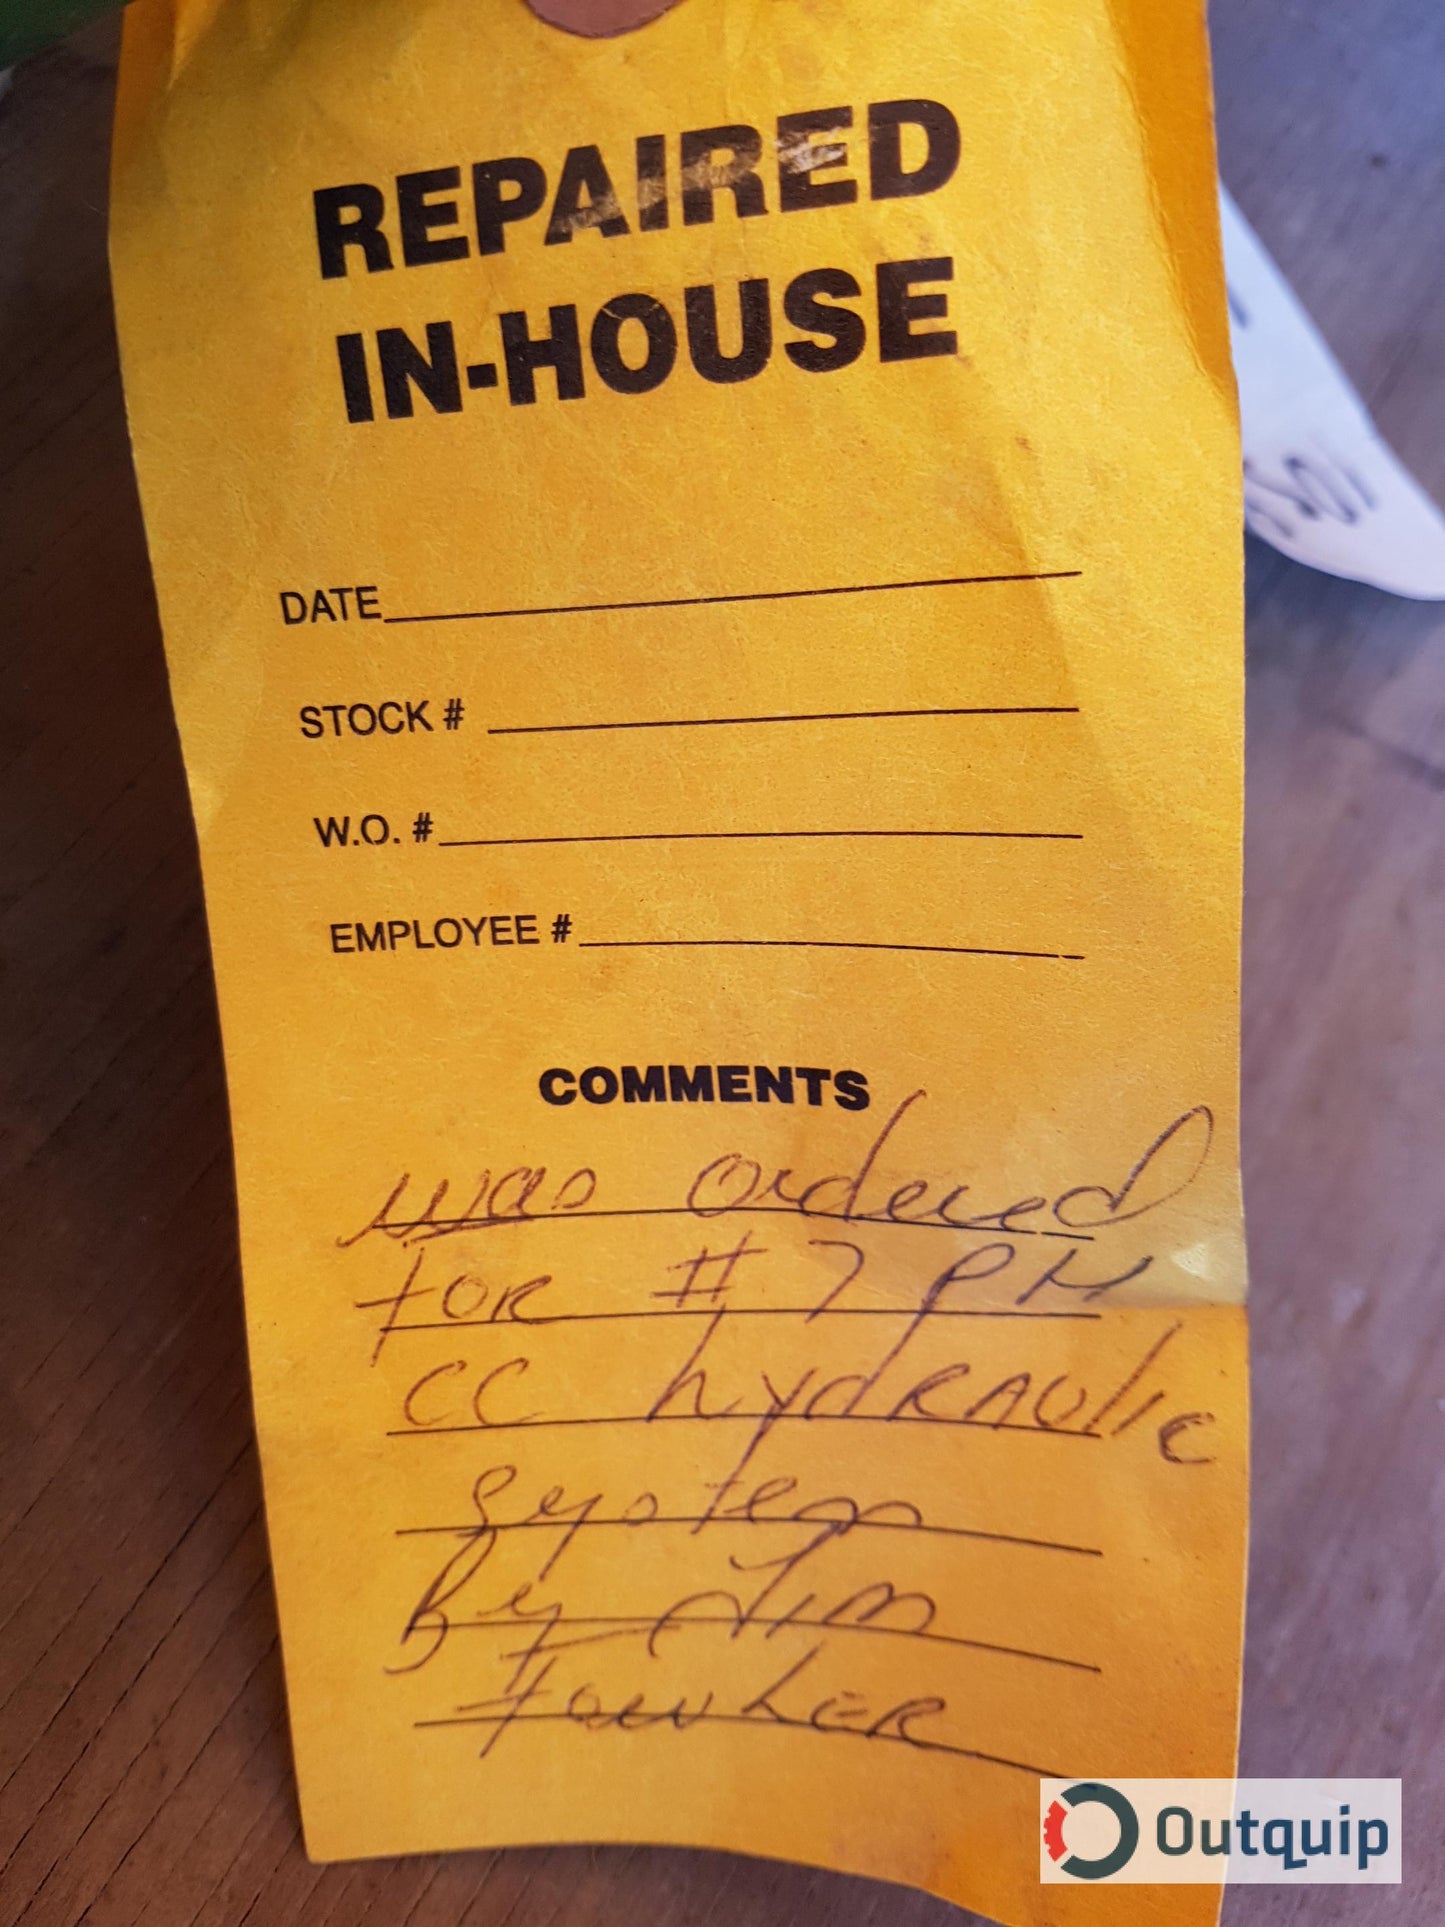 REPAIRED
IN-HOUSE
DATE
STOCK #
W.O. #
EMPLOYEE #
COMMENTS
was ordered
for # 7 PM
CC hydraulic
system
By Jim
Fowler
Outquip